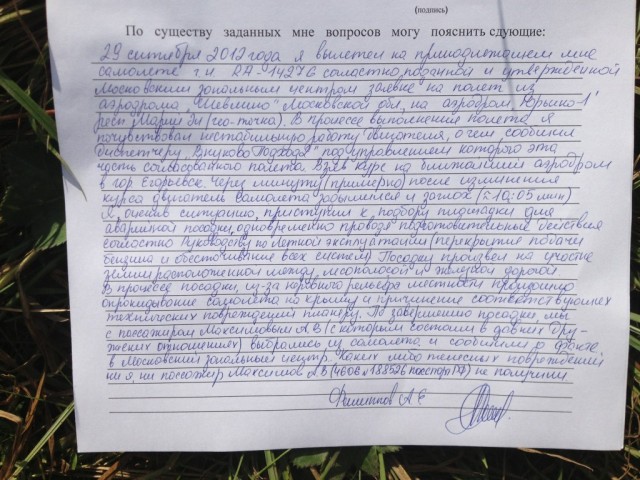 (подпись)
По существу заданных мне вопросов могу пояснить сдующие:
29 сентября 2012 года я вылетел на принадлежащем мне
самолете г.н. RA-1427G самостно поданной и утвержденной
Московским зональным центром заявке на полет из
аэродрома "Шевлино" Московской обл. на аэродром Юрьино-1
респ. Марий Эл (гео-точка). В процессе выполнение полета я
почувствовал нестабильную работу двигателя, о чем сообщил
диспетчеру "Внуково Подход" под управлением которого эта
часть согласованного полета. Взяв курс на ближайший аэродром
в гор Егорьевск. Через минуту (примерно) после изменения
курса двигатель самолета и заглох (≈ 10:05 мин)
Я, оценив ситуацию, приступил к подбору площадки для
аварийной посадки, одновременно проводя подготовительные действия
Руководству по летной эксплуатации (перекрытие подачи
бензина и обесточивание всех систем). Посадку произвел на участке
земли расположенном между лесополосой и железной дорогой
В процессе посадки, из-за неровного рельефа местности произошло
опрокидывание самолета на крышу и причинение соответствующих
технических повреждений планеру. По завершению посадки, мы
с пассажиром Максимовым А В (с которым состоим в давних дру-
жеских отношениях) выбрались из самолета и сообщили о факте
в Московский зональный центр. Каких либо телесных повреждений
ни я, ни пассажир Максимов А.В (4606 N 188526 паспорт РФ) не получили
Филиппов А Е